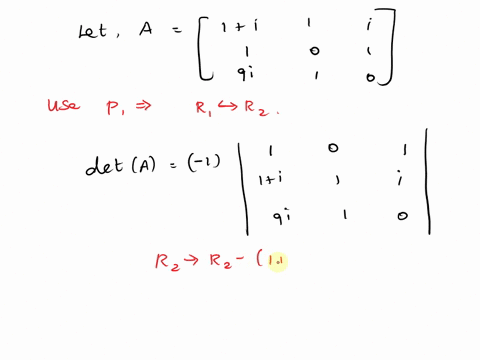 Let, A = [ 1+i 1 i
1 0 1
9i 1 0 ]
Use P₁ ⇒ R₁ ↔ R₂.
det(A) = (-1) | 1 0 1
1+i 1 i
9i 1 0 |
R₂ → R₂ - (1+